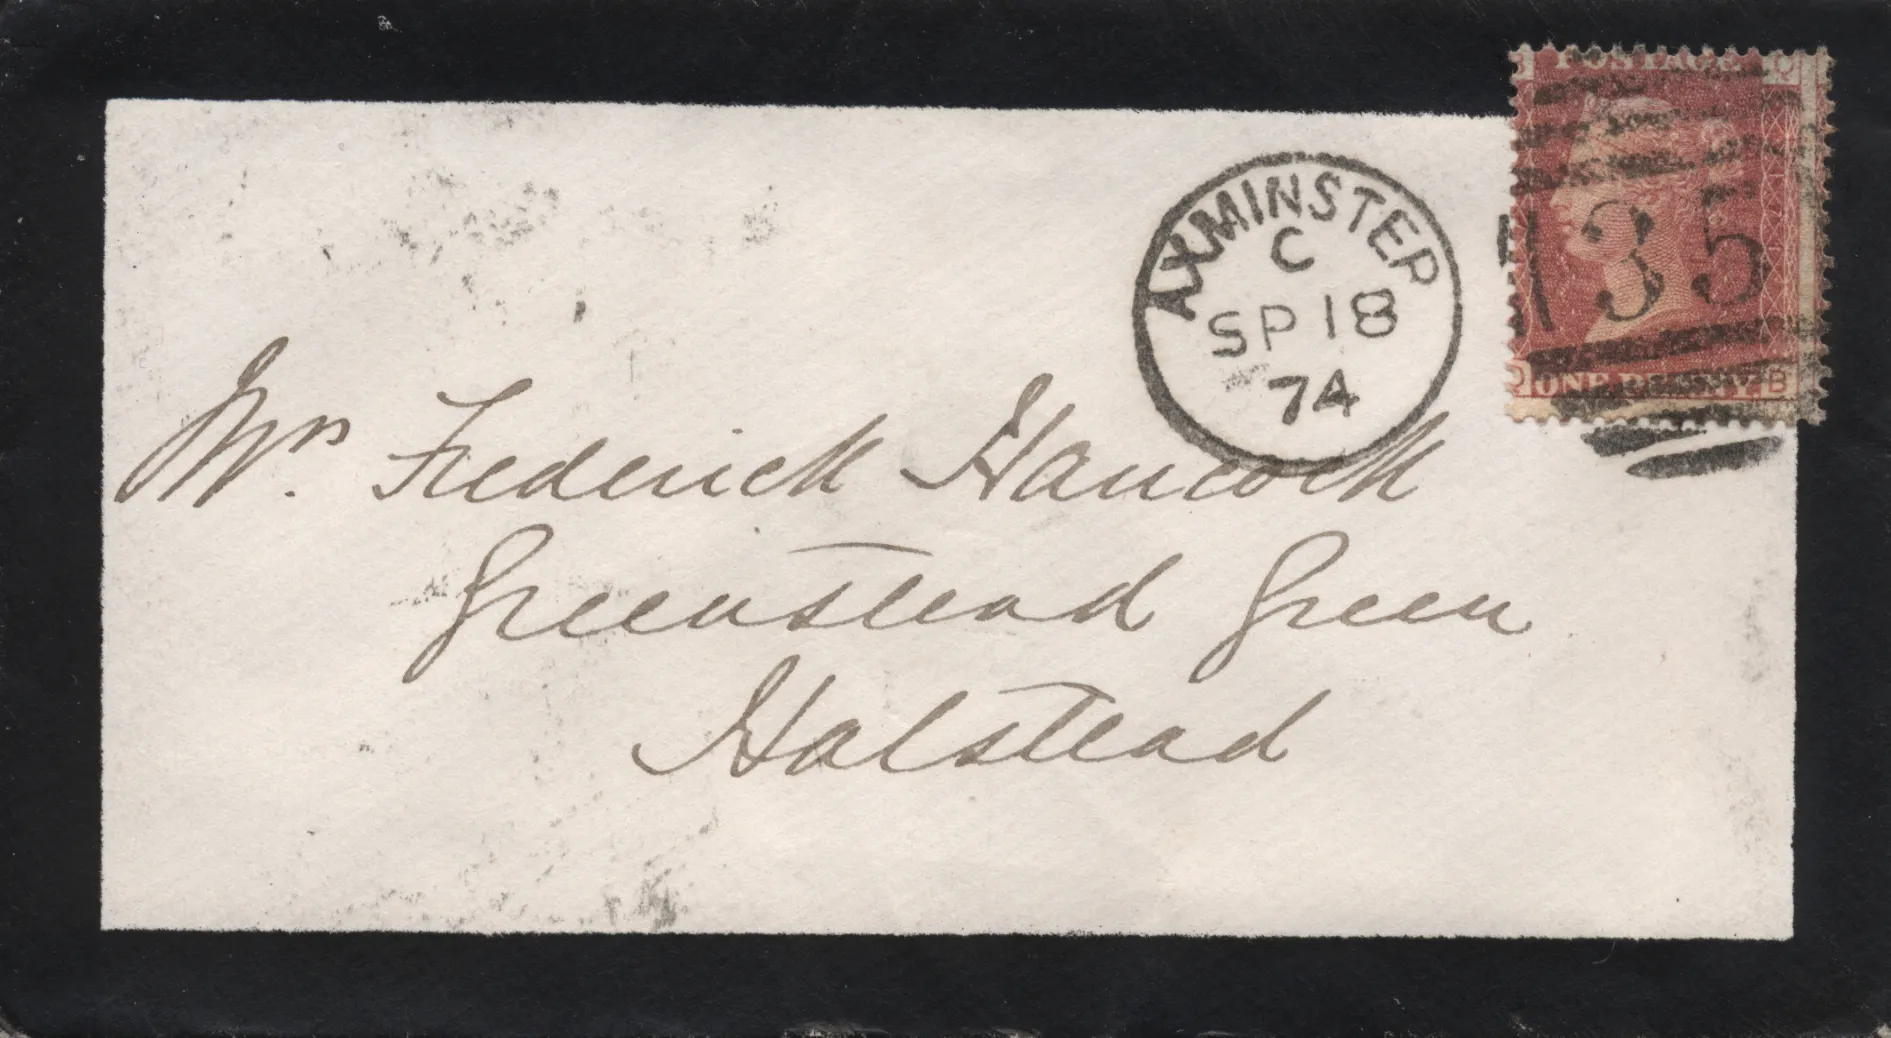 POSTAGE
AXMINSTER
C
SP 18
74
35
ONE PENNY
B
Mrs. Frederick Hancock
Greenstead Green
Halstead